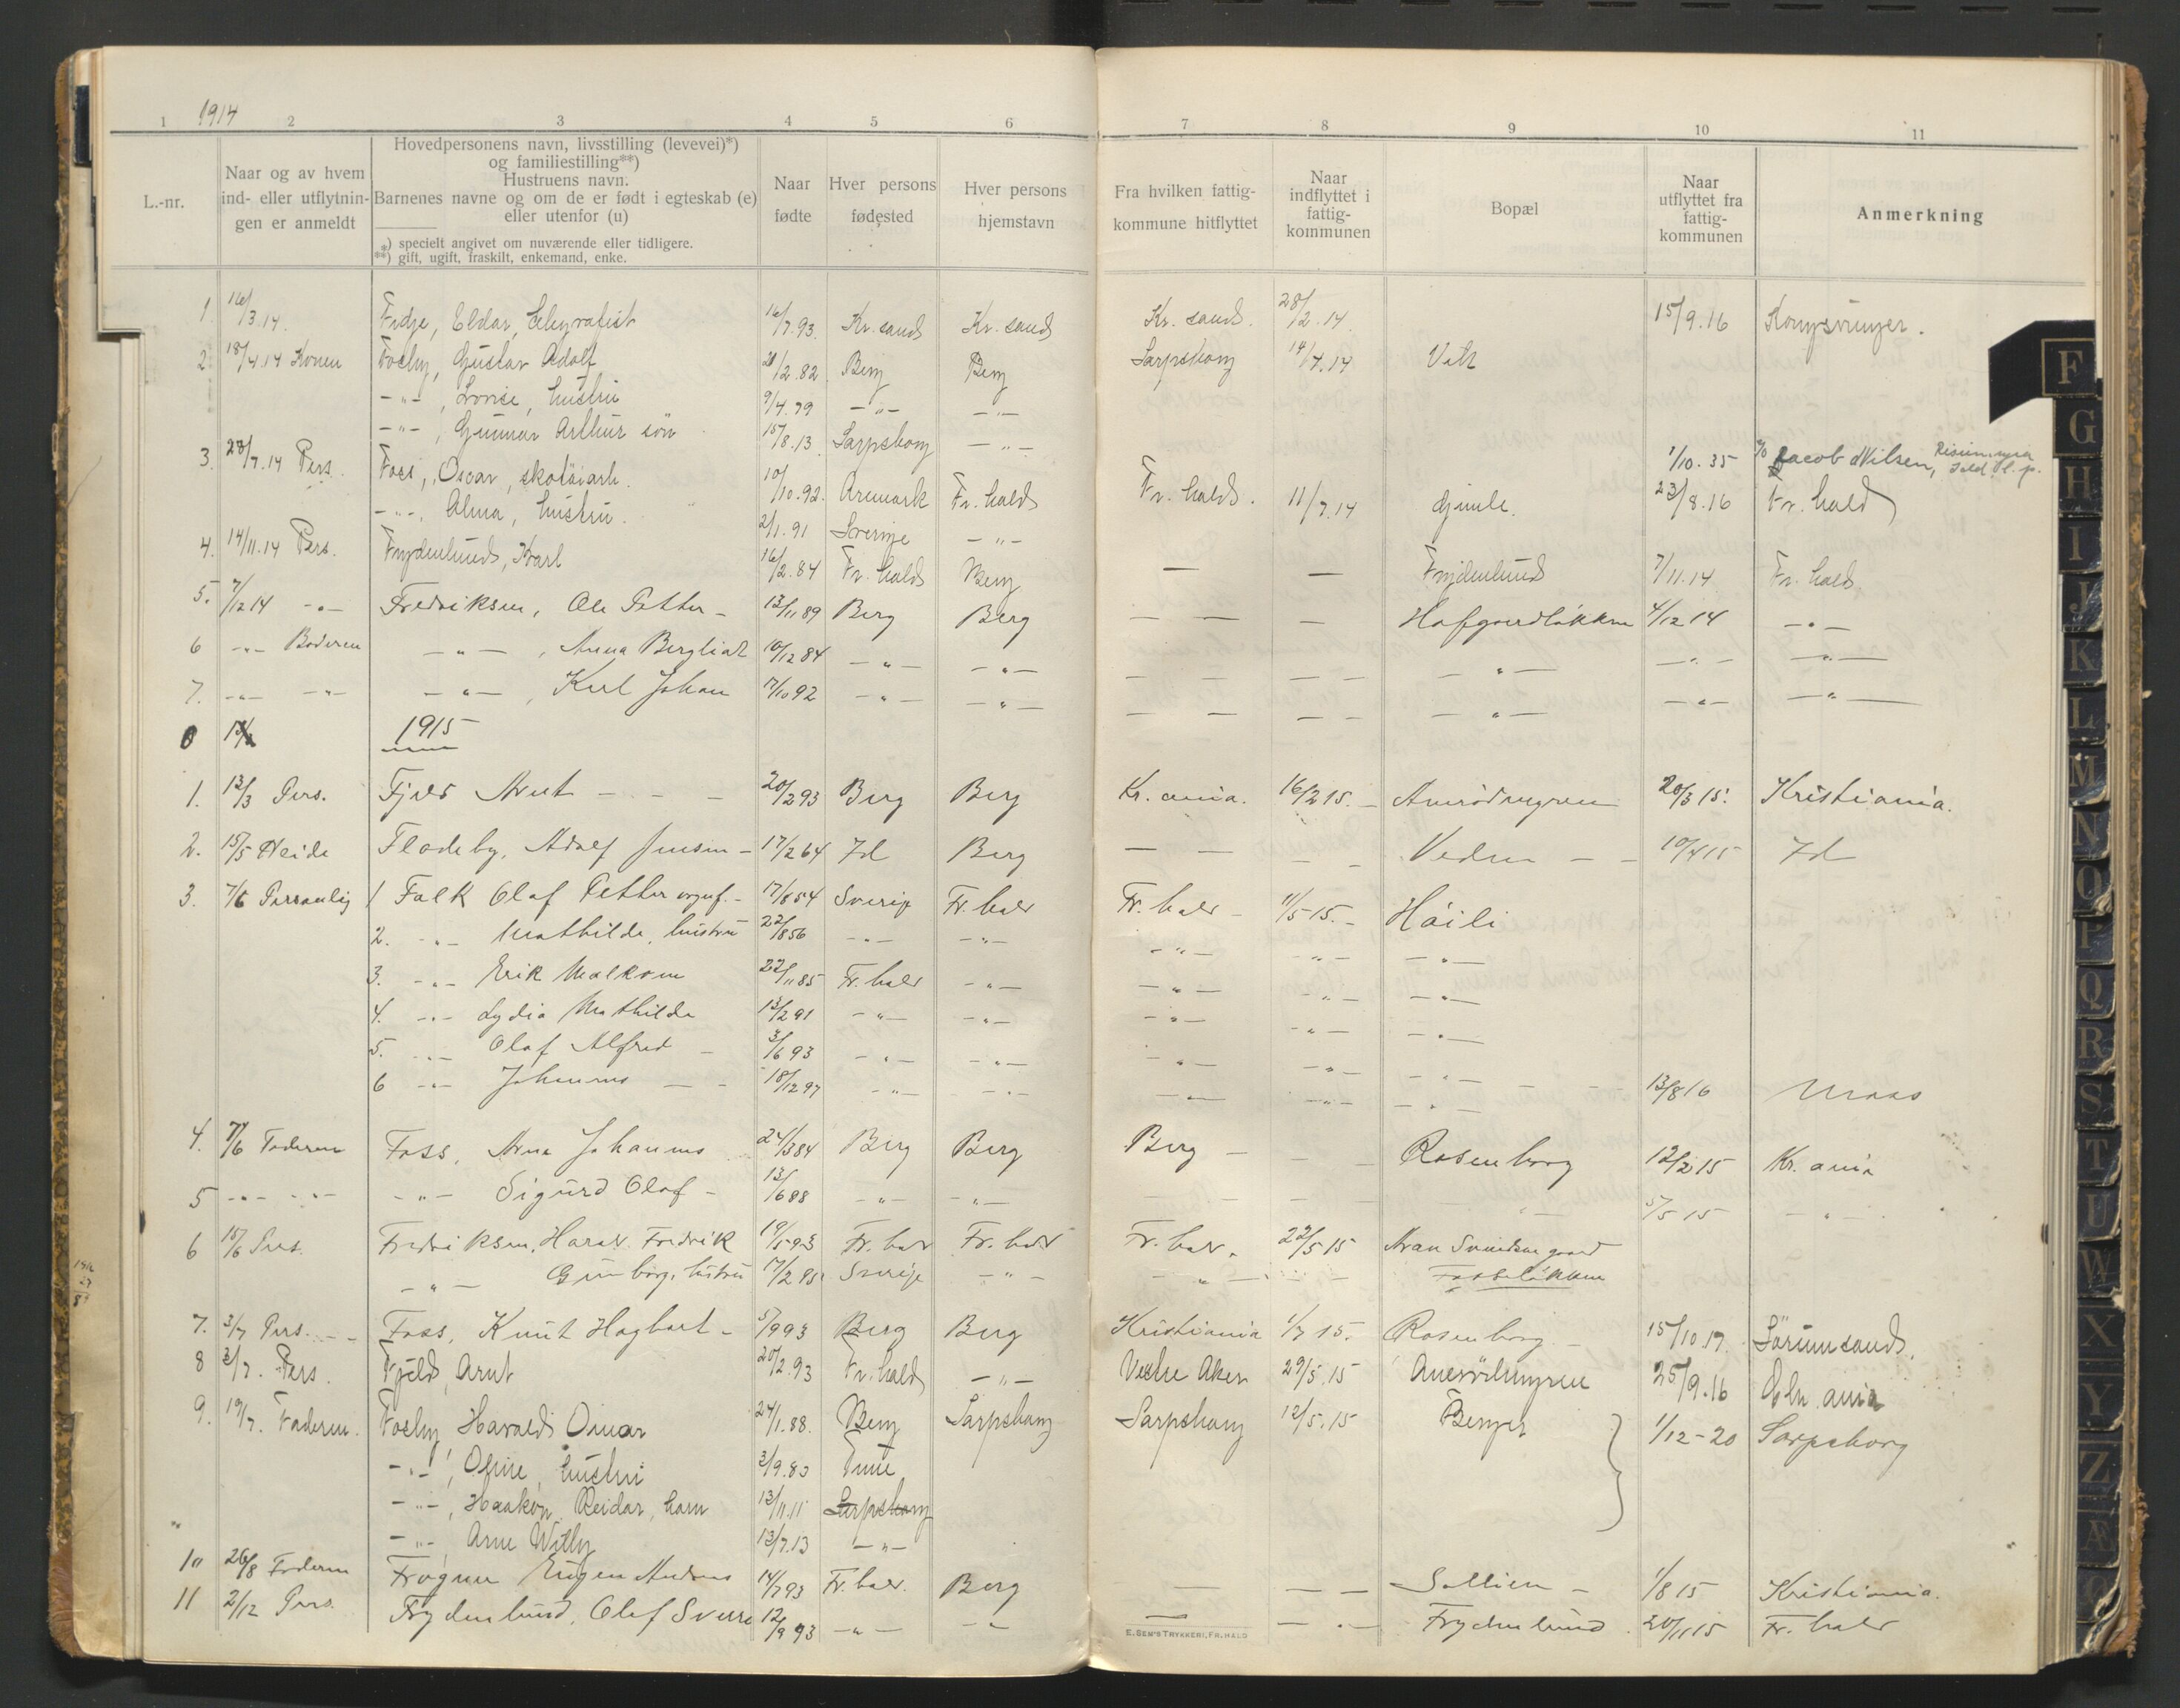 1914
1 2 3 4 5 6 7 8 9 10 11
L.-nr.
Naar og av hvem ind- eller utflytnin-gen er anmeldt
Hovedpersonens navn, livsstilling (levevei)*)
og familiestilling**)
Hustruens navn.
Barnenes navne og om de er født i egteskab (e)
eller utenfor (u)
*) specielt angivet om nuværende eller tidligere.
**) gift, ugift, fraskilt, enkemand, enke.
Naar fødte
Hver persons fødested
Hver persons hjemstavn
Fra hvilken fattig-kommune hitflyttet
Naar indflyttet i fattig-kommunen
Bopæl
Naar utflyttet fra fattig-kommunen
Anmerkning
1. 16/3.14. Fidje, Eldar, telegrafist 16/7.93. Kr. sand Kr. sand Kr. sand. 28/2.14. 15/9.16 Kongsvinger.
2. 18/4.14 Konen Fosby, Gustav Adolf 21/2.82. Berg Berg Sarpsborg 14/4.14 Vik
-"-, Lovise, hustru 9/4.79 -"- -"-
-"-, Gunnar Arthur sön 15/8.13 Sarpsborg -"-
1/10.35 Jacob Nilsen,
3. 28/7.14 Pers. Foss, Oscar, skotöiarb. 10/10.92. Aremark Fr. hald Fr. hald. 11/7.14 Gimle. 23/8.16 Fr. hald
-"-, Alma, hustru. 2/1.91 Sverige -"-
4. 14/11.14 Pers. Frydenlund, Karl 16/2.84 Fr. hald Berg — — Frydenlund 7/11.14 Fr. hald
5. 7/12 14 -"- Fredriksen, Ole Petter - 13/11 89 Berg Berg — — — Hafgaardløkken 4/12 14 -"-
6 -"- Broderen -"-, Anna Bergliot 10/12 84 -"- -"- — — — — -"- -"- -"-
7. -"- -"- -"-, Karl Johan 17/10 92 -"- -"- — — — — -"- -"- -"-
1915
1. 13/3 Pers. Fjeld Arnt - - - 20/2 93 Berg Berg Kr. ania. 16/2 15. - 20/3 15. Kristiania.
2. 15/5 Flodeby, Adolf Jensen - 17/2 64 Id Berg — — — — Veden - - 10/4 15 Id
3. 7/6 Personlig 1 Falk Olaf Petter 17/8 54 Sverige Fr. hald Fr. hald - 11/5 15. - Höili
2. -"- Mathilde, hustru 22/8 56 -"- -"- -"- -"- -"-
3. -"- Erik Malkom 22/11 85 Fr. hald -"- -"- -"- -"-
4. -"- Lydia Mathilde 13/2 91 -"- -"- -"- -"- -"-
5. -"- Olaf Alfred - 3/6 93 -"- -"- -"- -"- -"-
6 -"- Johannes - - 18/12 97 -"- -"- -"- -"- -"- 13/8 16 Moss
4. 7/6 Faderen Foss, Arne Johannes 24/3 84 Berg Berg Berg - - - Rosenborg 12/2 15 Kr. ania
5 -"- -"- -"- Sigurd Olaf - 13/6 88 -"- -"- — — — — -"- 5/5 15 -"-
6 15/6 Pers. Fredriksen, Harald Fredrik 19/5 93 Fr. hald Fr. hald Fr. hald. 22/5 15
-"- Gunborg, hustru 17/2 95 Sverige -"- -"- Fosseløkken
7. 3/7 Pers. - - Foss, Knut Hagbart - 5/9 93 Berg Berg Kristiania 1/7 15. Rosenborg 15/10 19. Sörumsand.
8 3/7. Pers. Fjeld, Arnt 20/2.93 Fr. hald -"- Vestre Aker 29/5.15 25/9.16
9. 19/7. Faderen. Fosby Harald Omar 24/1.88. Berg Sarpsborg Sarpsborg 12/5.15 Berger 1/12-20 Sarpsborg
-"-, Oline, hustru 3/9.83 Tune
-"-, Haakon Reidar, barn 13/11.11 Sarpsborg
-"-, Arne Willy 13/7.13 -"-
10 26/8 Faderen Frogner Eugen Andreas 14/7 93 Fr. hald. Berg — — — Sollien - 1/8 15 Kristiania.
11 2/12 Pers. Frydenlund, Olaf Sverre 12/9 93 -"- -"- — -"- Frydenlund. 20/11 15 Fr. hald
E. SEM'S TRYKKERI, FR.HALD
F
G
H
I
J
K
L
M
N
O
P
Q
R
S
T
U
W
X
Y
Z
Æ
Ø